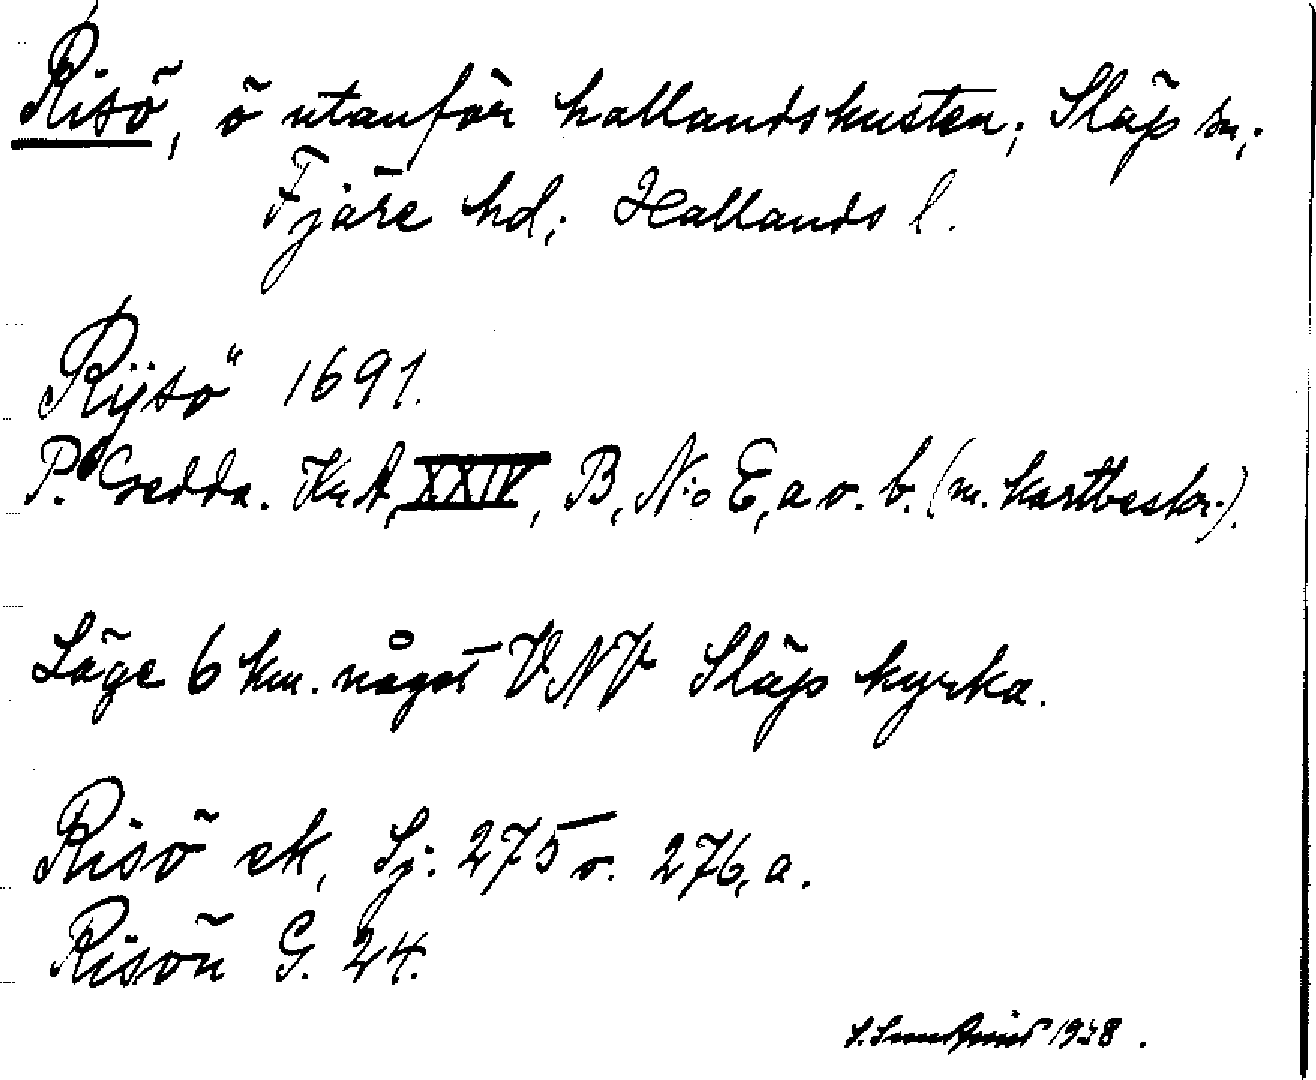 Risö, ö utanför hallandskusten; Släp sn;
Fjäre hd; Hallands l.
Rÿsö 1691.
P. Gedda. Kr.A, XXIV, B, N:o E, a o. b. (m. kartbeskr.).
Läge 6 km. något VNV Släp kyrka.
Risö ek, Sj. 275 o. 276, a.
Risön G. 24.
1938.